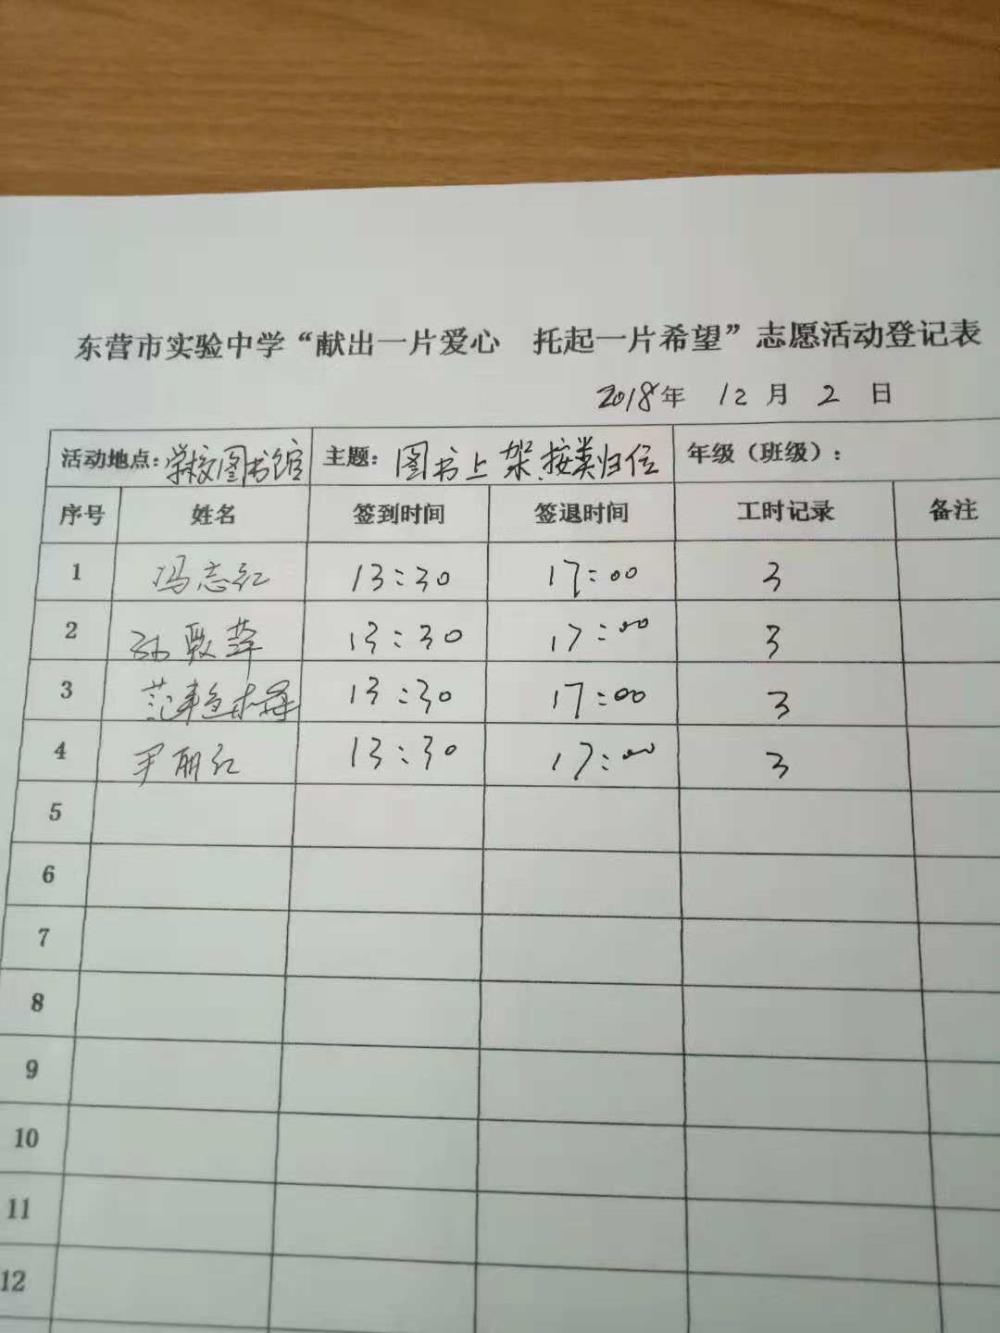 东营市实验中学“献出一片爱心 托起一片希望”志愿活动登记表
2018年 12月 2日
活动地点:学校图书馆 主题:图书上架,按类归位 年级(班级):
序号 姓名 签到时间 签退时间 工时记录 备注
1 冯志红 13:30 17:00 3
2 孙 13:30 17:00 3
3 范 13:30 17:00 3
4 尹丽红 13:30 17:00 3
5
6
7
8
9
10
11
12